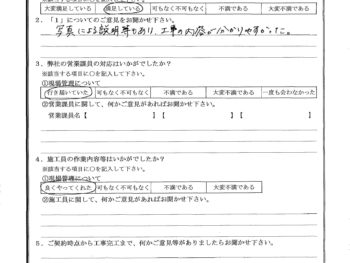 大変満足している 満足している 可もなく不可もなく 不満である 大変不満である
2．「1」についてのご意見をお聞かせ下さい。
写真による説明等もあり、工事の内容がわかりやすかった。
3．弊社の営業課員の対応はいかがでしたか？
※該当する項目に○を記入して下さい。
①現場管理について
行き届いていた 可もなく不可もなく 不満である 大変不満である 一度も会わなかった
②営業課員に関して、何かご意見があればお聞かせ下さい。
営業課員名【 】【 】【 】
4．施工員の作業内容等はいかがでしたか？
※該当する項目に○を記入して下さい。
①現場管理について
良くやってくれた 可もなく不可もなく 不満である 大変不満である
②施工員に関して、何かご意見があればお聞かせ下さい。
5．ご契約時点から工事完工まで、何かご意見等がありましたらお聞かせ下さい。